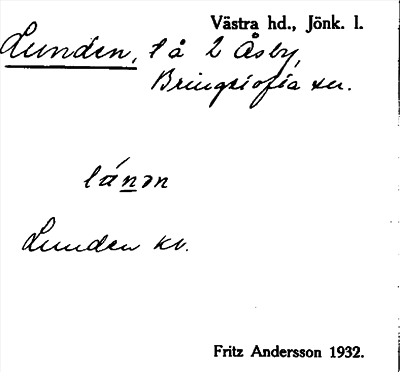 Västra hd., Jönk. l.
Lunden, l å 2 Åsby,
Bringstofta sn.
lánən
Lunden kv.
Fritz Andersson 1932.